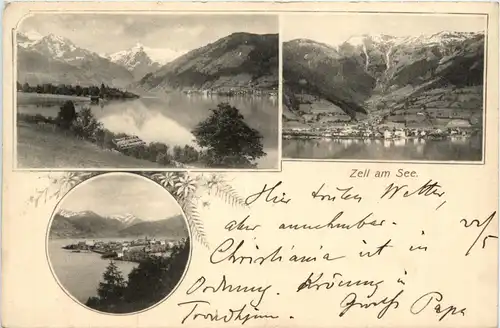 Zell am See.
Hier trübes Wetter,
aber annehmbar. 22/5
Christiania ist in
Ordnung. Krönung in
Trondhjem. Papa